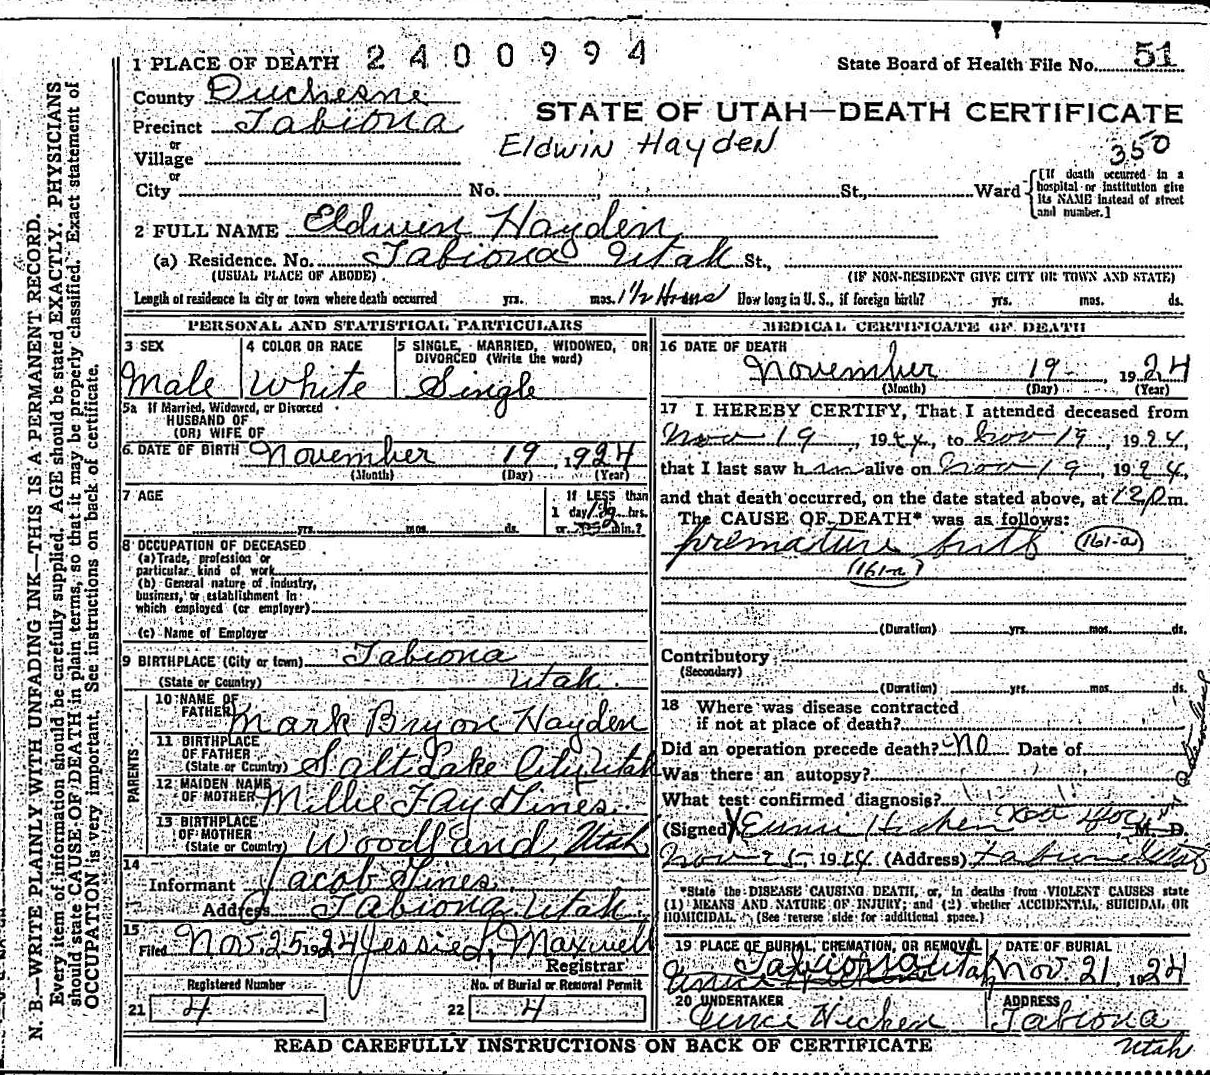 1 PLACE OF DEATH 2400994 State Board of Health File No. 51
County Duchesne
STATE OF UTAH—DEATH CERTIFICATE
Precinct Tabiona
or
Village
Eldwin Hayden
350
or
City No. St., Ward
[If death occurred in a
hospital or institution give
its NAME instead of street
and number.]
2 FULL NAME Eldwin Hayden
(a) Residence. No. Tabiona Utah St.,
(USUAL PLACE OF ABODE) (IF NON-RESIDENT GIVE CITY OR TOWN AND STATE)
Length of residence in city or town where death occurred yrs. mos. 1 1/2 How long in U.S., if foreign birth? yrs. mos. ds.
PERSONAL AND STATISTICAL PARTICULARS
3 SEX
Male
4 COLOR OR RACE
White
5 SINGLE, MARRIED, WIDOWED, OR
DIVORCED (Write the word)
Single
5a If Married, Widowed, or Divorced
HUSBAND OF
(OR) WIFE OF
6 DATE OF BIRTH November 19, 1924
(Month) (Day) (Year)
7 AGE
yrs. mos. ds.
If LESS than
1 day hrs.
or min.?
8 OCCUPATION OF DECEASED
(a) Trade, profession or
particular kind of work
(b) General nature of industry,
business, or establishment in
which employed (or employer)
(c) Name of Employer
9 BIRTHPLACE (City or town) Tabiona
(State or Country) Utah.
PARENTS
10 NAME OF
FATHER Mark Bryon Hayden
11 BIRTHPLACE
OF FATHER
(State or Country) Salt Lake City, Utah
12 MAIDEN NAME
OF MOTHER Millie Fay Gines.
13 BIRTHPLACE
OF MOTHER
(State or Country) Woodland, Utah
14
Informant Jacob Gines
Address Tabiona, Utah.
15
Filed Nov. 25, 1924 Jessie L. Maxwell
Registrar
Registered Number
21 4
No. of Burial or Removal Permit
22 4
MEDICAL CERTIFICATE OF DEATH
16 DATE OF DEATH
November 19 1924
(Month) (Day) (Year)
17 I HEREBY CERTIFY, That I attended deceased from
Nov 19, 1924, to Nov 19, 1924,
that I last saw him alive on Nov 19, 1924,
and that death occurred, on the date stated above, at 12 p m.
The CAUSE OF DEATH* was as follows:
premature birth (161-a)
(161-a)
(Duration) yrs. mos. ds.
Contributory
(Secondary)
(Duration) yrs. mos. ds.
18 Where was disease contracted
if not at place of death?
Did an operation precede death? no Date of
Was there an autopsy?
What test confirmed diagnosis?
(Signed) X M. D.
Nov 25 1924 (Address)
*State the DISEASE CAUSING DEATH, or, in deaths from VIOLENT CAUSES state
(1) MEANS AND NATURE OF INJURY; and (2) whether ACCIDENTAL, SUICIDAL OR
HOMICIDAL. (See reverse side for additional space.)
19 PLACE OF BURIAL, CREMATION, OR REMOVAL
Tabiona Utah
DATE OF BURIAL
Nov. 21, 1924
20 UNDERTAKER
ADDRESS
Tabiona
Utah
READ CAREFULLY INSTRUCTIONS ON BACK OF CERTIFICATE
N. B.—WRITE PLAINLY WITH UNFADING INK—THIS IS A PERMANENT RECORD.
Every item of information should be carefully supplied. AGE should be stated EXACTLY. PHYSICIANS
should state CAUSE OF DEATH in plain terms, so that it may be properly classified. Exact statement of
OCCUPATION is very important. See instructions on back of certificate.